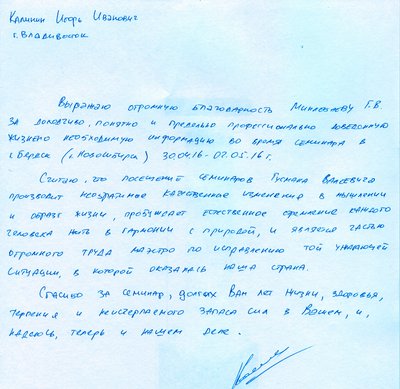 Калинин Игорь Иванович
г. Владивосток
Выражаю огромную благодарность Минлебаеву Г.В
за доходчиво, понятно и предельно профессионально доведенную
жизнено необходимую информацию во время семинара в
г. Бердск (г. Новосибирск) 30.04.16-07.05.16 г.
Считаю, что посещение семинаров Гусмана Валеевича
производит необратимые качественное изменения в мышлении
и образе жизни, пробуждает естественное стремление каждого
человека жить в гармонии с природой, и является частью
огромного труда маэстро по исправлению той ужасающей
ситуации, в которой оказалась наша страна.
Спасибо за семинар, долгих Вам лет жизни, здоровья,
терпения и неисчерпаемого запаса сил в Вашем, и,
надеюсь, теперь и нашем деле.